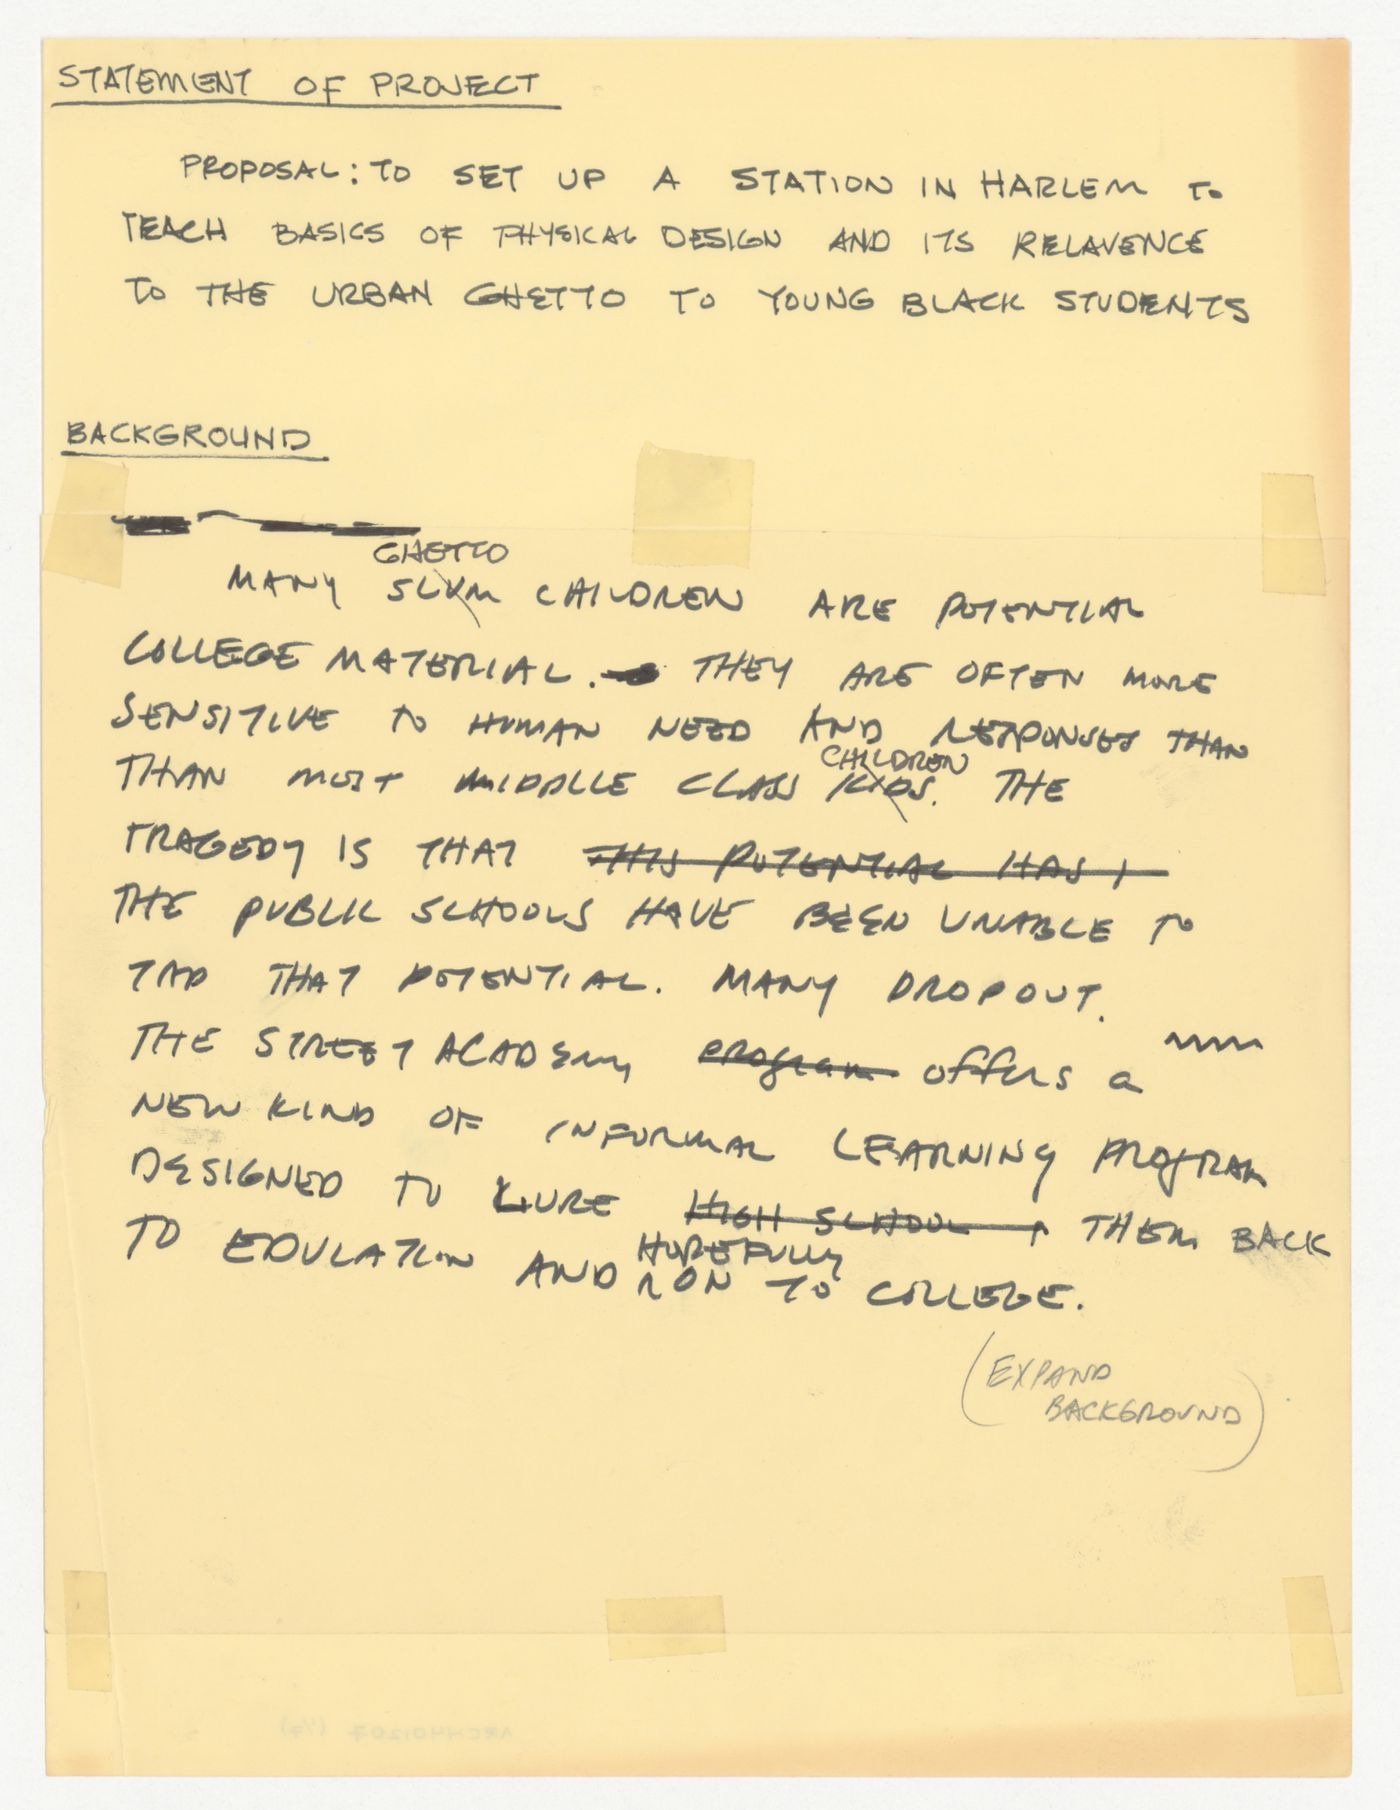 STATEMENT OF PROJECT
PROPOSAL: TO SET UP A STATION IN HARLEM TO
TEACH BASICS OF PHYSICAL DESIGN AND ITS RELAVENCE
TO THE URBAN GHETTO TO YOUNG BLACK STUDENTS
BACKGROUND
GHETTO
MANY SLUM CHILDREN ARE POTENTIAL
COLLEGE MATERIAL. THEY ARE OFTEN MORE
SENSITIVE TO HUMAN NEED AND RESPONSES THAN
CHILDREN
THAN MOST MIDDLE CLASS KIDS. THE
TRAGEDY IS THAT THIS POTENTIAL HAS
THE PUBLIC SCHOOLS HAVE BEEN UNABLE TO
TAP THAT POTENTIAL. MANY DROPOUT.
THE STREET ACADEMY program offers a
NEW KIND OF INFORMAL LEARNING PROGRAM
DESIGNED TO LURE HIGH SCHOOL THEM BACK
HOPEFULLY
TO EDUCATION AND ON TO COLLEGE.
(EXPAND
BACKGROUND)